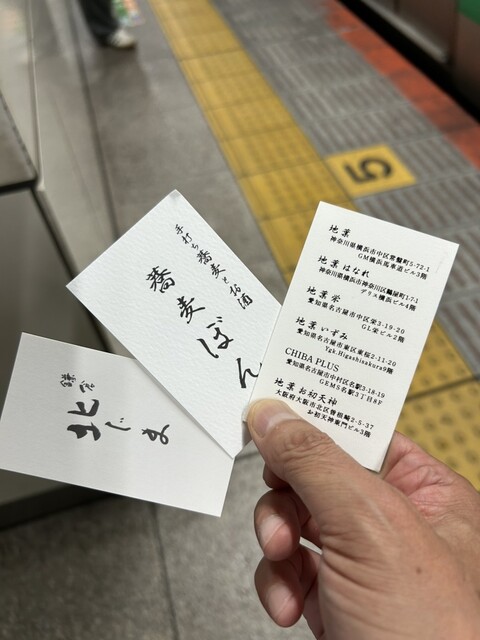 鎌倉
北じま
手打ち蕎麦とお酒
蕎麦ぼん
地葉
神奈川県横浜市中区常盤町5-72-1
GM横浜馬車道ビル3階
地葉 はなれ
神奈川県横浜市神奈川区鶴屋町1-7-1
デリス横浜ビル4階
地葉 栄
愛知県名古屋市中区栄3-19-20
GL栄ビル2階
地葉 いずみ
愛知県名古屋市東区東桜2-11-20
Ygk.Higashisakura9階
CHIBA PLUS
愛知県名古屋市中村区名駅3-18-19
GEMS名駅3丁目8F
地葉 お初天神
大阪府大阪市北区曽根崎2-5-37
お初天神東門ビル3階
5